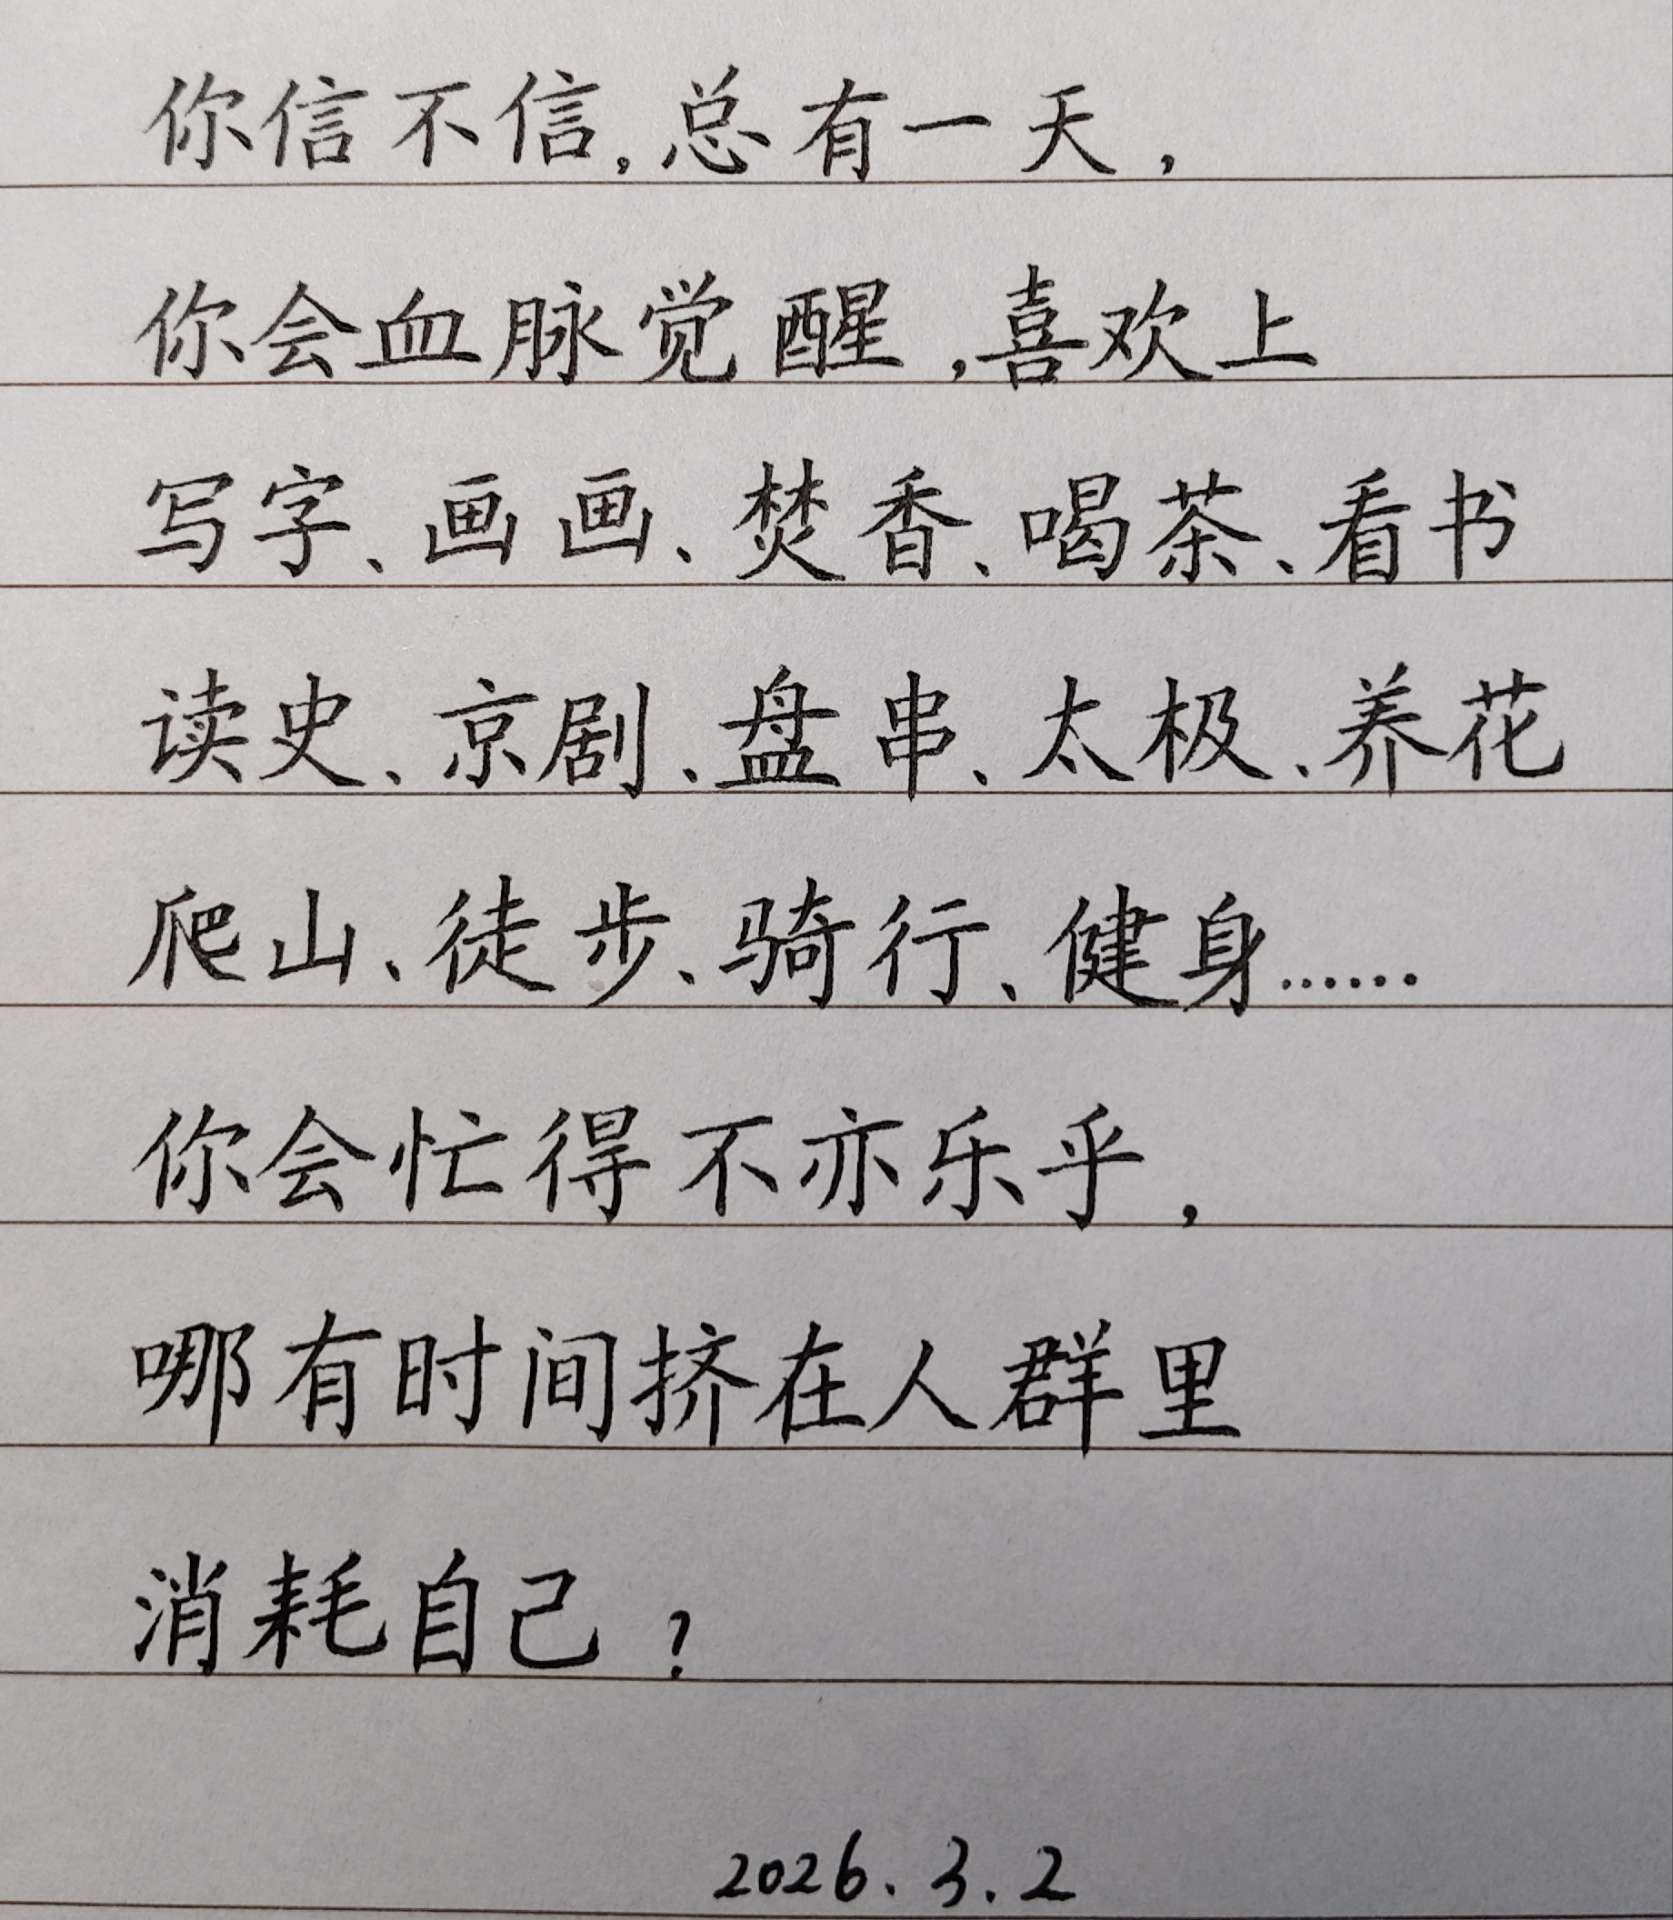 你信不信,总有一天,
你会血脉觉醒,喜欢上
写字、画画、焚香、喝茶、看书
读史、京剧、盘串、太极、养花
爬山、徒步、骑行、健身……
你会忙得不亦乐乎,
哪有时间挤在人群里
消耗自己?
2026.3.2